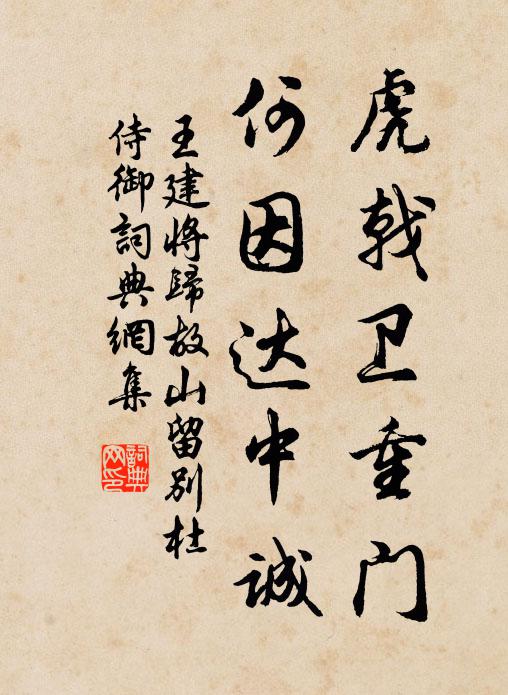 虎戟卫重门
何因达中诚
王建将歸故山留别杜
侍御詞典網集
詞典
网印